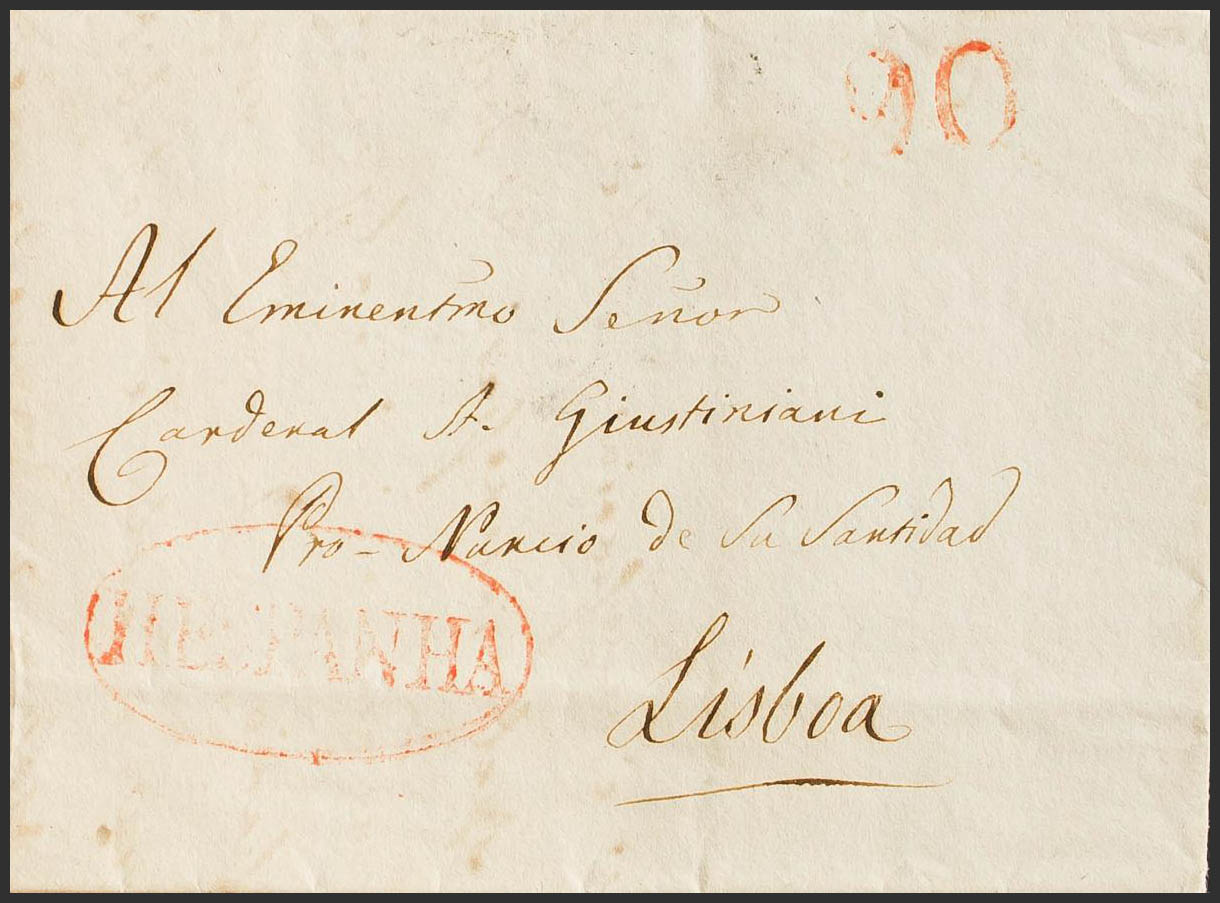 90
Al Eminentmo Señor
Cardenal A. Giustiniani
Pro-Nuncio de Su Santidad
HESPANHA
Lisboa